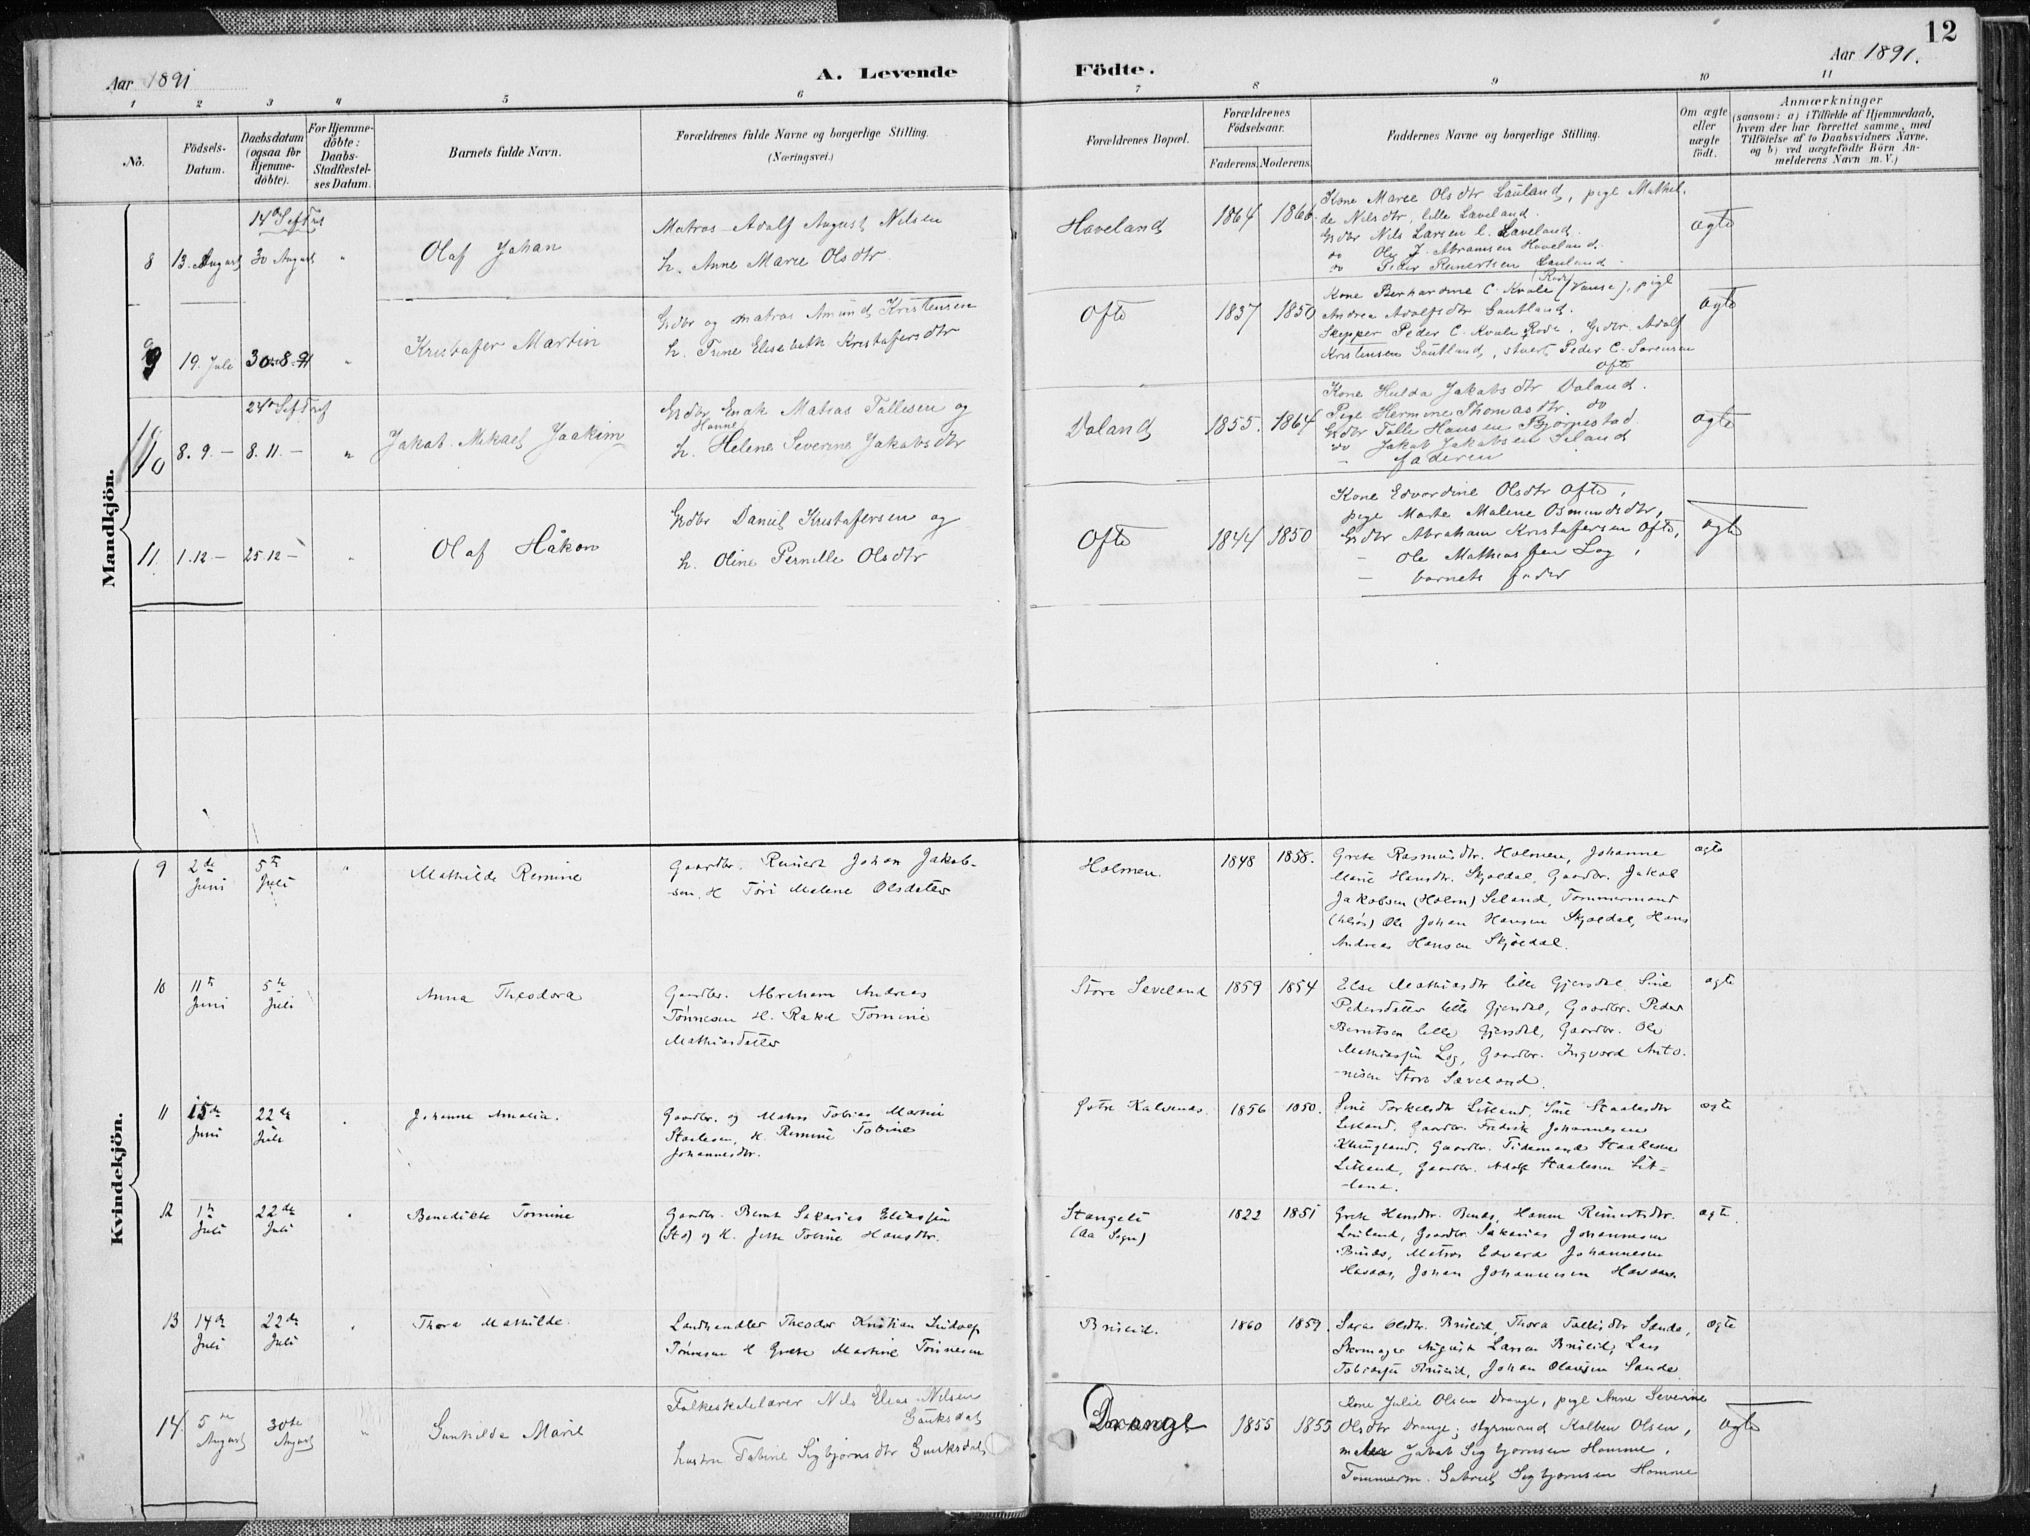 12
Aar 1891
A. Levende
Födte.
Aar 1891.
1 2 3 4 5 6 7 8 9 10 11
No.
Födsels-
Datum.
Daabsdatum
(ogsaa for
Hjemme-
döbte).
For Hjemme-
döbte:
Daabs-
Stadfæstel-
ses Datum.
Barnets fulde Navn.
Forældrenes fulde Navne og borgerlige Stilling.
(Næringsvei.)
Forældrenes Bopæl.
Forældrenes
Födselsaar.
Faderens. Moderens.
Faddernes Navne og borgerlige Stilling.
Om ægte
eller
uægte
födt.
Anmærkninger
(saasom: a) i Tilfælde af Hjemmedaab,
hvem der har forrettet samme, med
Tilföielse af to Daabsvidners Navne,
og b) ved uægtefödte Börn An-
melderens Navn m. V.)
Mandkjön.
8 13. August 30 August "
Olaf Johan
Matros Adolf August Nilsen
h. Anne Marie Olsdtr
Haveland
1864 1866
Kone Marie Olsdtr Lauland, pige Mathil-
de Nilsdtr, lille Laveland.
Grdbr Nils Larsen l. Laveland.
do Ole J. Abramsen Haveland.
do Peder Reinertsen Lauland.
ægte
9 19. Juli 30.8.91 "
Kristofer Martin
Grdbr og matros Amund Kristensen
h. Trine Elisabeth Kristofersdtr
Ofte
1837 1850
Kone Berhardine C. Kvale (Vanse), pige
Andrea Adolfsdtr Gautland.
Skipper Peder C. Kvale Rode, Grdbr. Adolf
Kristensen Gautland, stuert Peder C. Sørensen
Ofte
ægte
10 8. 9. – 8. 11. – "
Jakob Mikael Joakim
Grdbr Enok Matias Tallesen og
h. Helene Severine Jakobsdtr
Hanne
Daland
1855. 1864
Kone Hulda Jakobsdtr Daland.
Pige Hermine Thomasdtr. do
Grdbr Talle Hansen Bjørnestad
do Jakob Jakobsen Seland
– faderen
ægte
11. 1. 12 – 25. 12 – "
Olaf Håkon
Grdbr Daniel Kristofersen og
h. Oline Pernille Olsdtr
Ofte
1844 1850
Kone Edvardine Olsdtr Ofte,
pige Marte Malene Osmundsdtr,
Grdbr Abraham Kristofersen Ofte,
– Ole Mathiassen Log,
– barnets fader
ægte
Kvindekjön.
9 2de Juni 5te Juli "
Mathilde Remine
Gaardbr. Reinert Johan Jakob-
sen, H. Tóri Malene Olsdatter
Holmen.
1848 1858.
Grete Rasmusdtr. Holmen, Johanne
Marie Hansdtr. Skjoldal, Gaardbr. Jakob
Jakobsen (Holm) Seland, Tømmermand
Ole Johan Hansen Skjoldal, Hans
Andreas Hansen Skjoldal.
ægte
10 11te Juni 5te Juli
Anna Theodora
Gaardbr. Abraham Andreas
Tønnesen H. Rakel Tomine
Mathiasdatter
Store Sæveland
1859 1854
Else Mathiasdtr lille Gjersdal, Sine
Pedersdatter lille Gjersdal, Gaardbr. Peder
Berntsen lille Gjersdal, Gaardbr. Ole
Mathiassen Log, Gaardbr. Ingvard Anto-
-nisen Store Sæveland.
ægte
11 15de Juni 22de Juli "
Johanne Amalia.
Gaardbr. og Matros Tobias Martin
Staalesen, H. Remine Tobine
Johannesdtr.
Østre Kalvenes.
1856 1850.
Sine Torkelsdtr Litland, Sine Staalesdtr
Litland, Gaardbr. Fredrik Johannesen
Klungland, Gaardbr. Tidemand Staalesen
Litland, Gaardbr. Adolf Staalesen Lit-
-land.
ægte
12 1te Juli 22de Juli "
Benedikte Tomine
Gaardbr. Bernt Sakarias Eliassen
(Sto) og H. Jette Tobine Hansdtr.
Stangeli
(Aa Sogn)
1822 1851
Grete Hansdtr. Buaas, Hanne Reinertsdtr.
Lauland, Gaardbr. Sakarias Johannesen
Buaas, Matros Edvard Johannesen
Havaas, Johan Johannesen Havaas
ægte.
13 14de Juli 22de Juli "
Thora Mathilde.
Landhandler Theodor Kristian Ludvig
Tønnesen H Grete Martine Tønnesen
Briseid.
1860 1859.
Sara Olsdtr. Briseid, Thora Tallesdtr Sande,
Skomager August Larsen Briseid, Lars
Tobiassen Briseid, Johan Olausen Sande
ægte
14 5te August 30te August "
Gunhilde Marie
Folkeskolelærer Nils Elias Nilsen
Gauksdal
hustru Tobine Sigbjørnsdtr Gauksdal
Drange
1855 1855
Kone Julie Olsen Drange, pige Anne Severine
Olsdtr Drange; styrmand Kolben Olsen,
maler Jakob Sigbjørnsen Homme,
Tømmerm. Gabriel Sigbjørnsen Homme
ægte